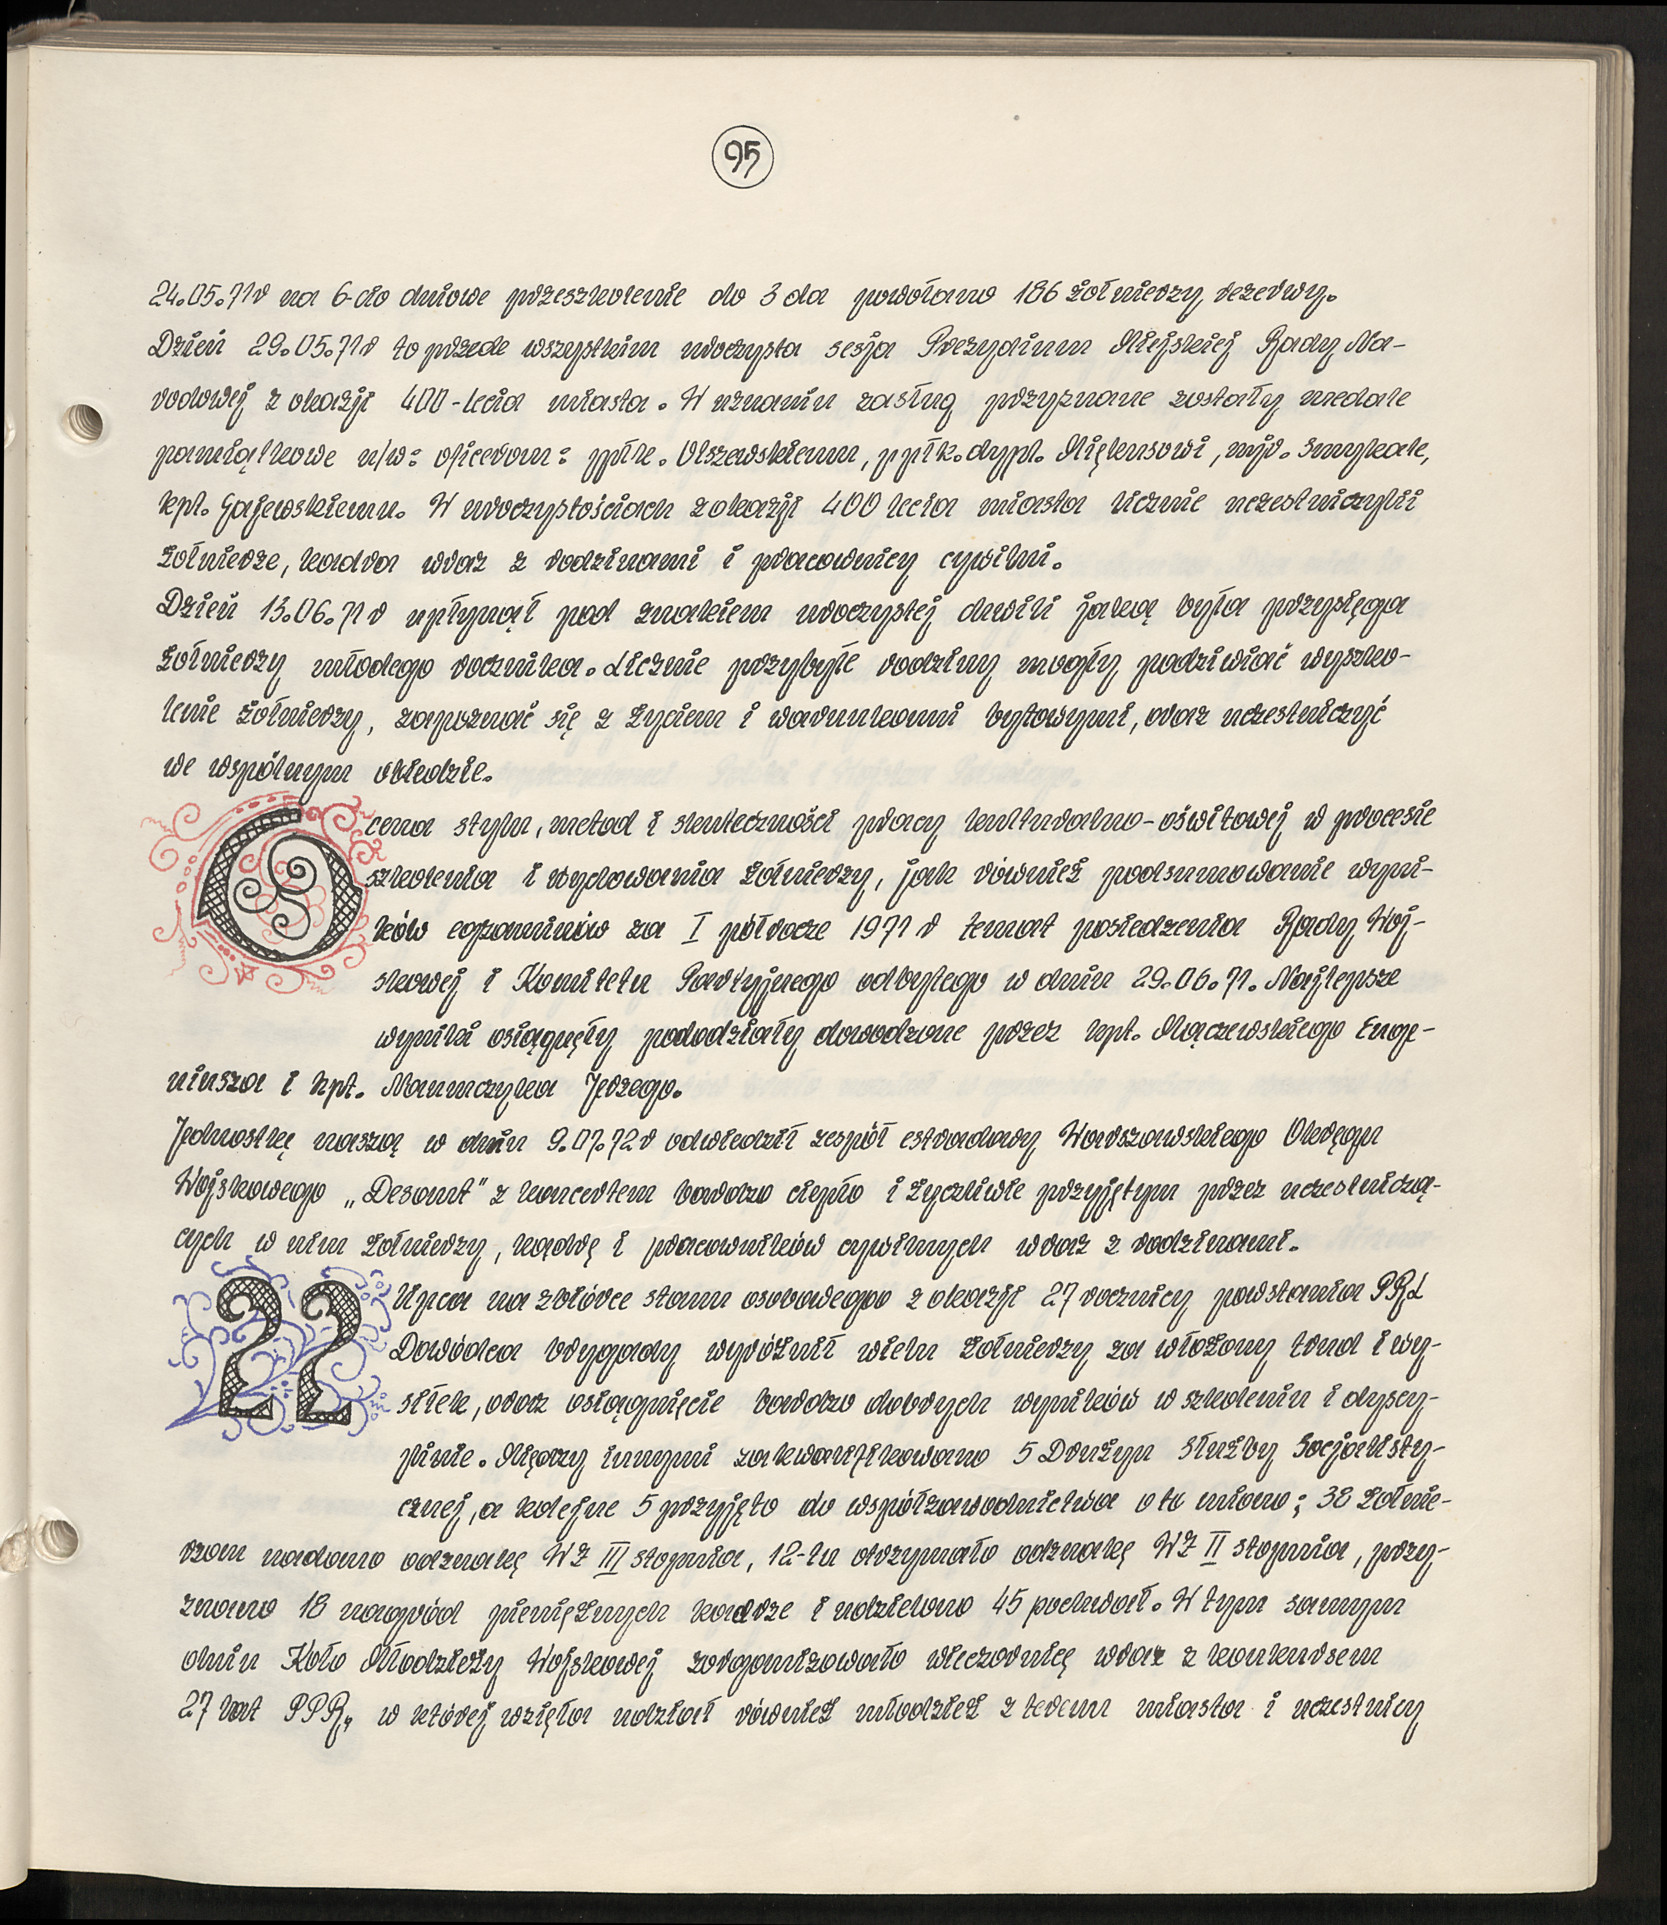 95
24.05.71r na 6-cio dniowe przeszkolenie do 3 da powołano 186 żołnierzy rezerwy.
Dzień 29.05.71r to przede wszystkim uroczysta sesja Prezydium Miejskiej Rady Na-
rodowej z okazji 400-lecia miasta. W uznaniu zasług przyznane zostały medale
pamiątkowe n/w: oficerom: ppłk. Olszewskiemu, ppłk. dypl. Miękusowi, mjr. Smykale,
kpt. Gajewskiemu. W uroczystościach z okazji 400 lecia miasta licznie uczestniczyli
żołnierze, kadra wraz z rodzinami i pracownicy cywilni.
Dzień 13.06.71r upłynął pod znakiem uroczystej chwili jaką była przysięga
żołnierzy młodego rocznika. Licznie przybyłe rodziny mogły podziwiać wyszko-
lenie żołnierzy, zapoznać się z życiem i warunkami bytowymi, oraz uczestniczyć
we wspólnym obiedzie.
Ocena stylu, metod i skuteczności pracy kulturalno-oświtowej w procesie
szkolenia i wychowania żołnierzy, jak również podsumowanie wyni-
ków egzaminów za I półrocze 1971r temat posiedzenia Rady Woj-
skowej i Komitetu Partyjnego odbytego w dniu 29.06.71. Najlepsze
wyniki osiągnęły pododziały dowodzone przez kpt. Mączewskiego Euge-
niusza i kpt. Naumczyka Jerzego.
Jednostkę naszą w dniu 9.07.72r odwiedził zespół estradowy Warszawskiego Okręgu
Wojskowego „Desant" z koncertem bardzo ciepło i życzliwie przyjętym przez uczestniczą-
cych w nim żołnierzy, kadrę i pracowników cywilnych wraz z rodzinami.
22 lipca na zbiórce stanu osobowego z okazji 27 rocznicy powstania PRL
Dowódca Brygady wyróżnił wielu żołnierzy za włożony trud i wy-
siłek, oraz osiągnięcie bardzo dobrych wyników w szkoleniu i dyscy-
plinie. Między innymi zakwalifikowano 5 Drużyn Służby Socjalisty-
cznej, a kolejne 5 przyjęto do współzawodnictwa o to miano; 38 żołnie-
rzom nadano odznakę WŻ III stopnia, 12-tu otrzymało odznakę WŻ II stopnia, przy-
znano 18 nagród pieniężnych kadrze i udzielono 45 pochwał. W tym samym
dniu Koło Młodzieży Wojskowej zorganizowało wieczornicę wraz z konkursem
27 lat PPR, w której wzięła udział również młodzież z terenu miasta i uczestnicy